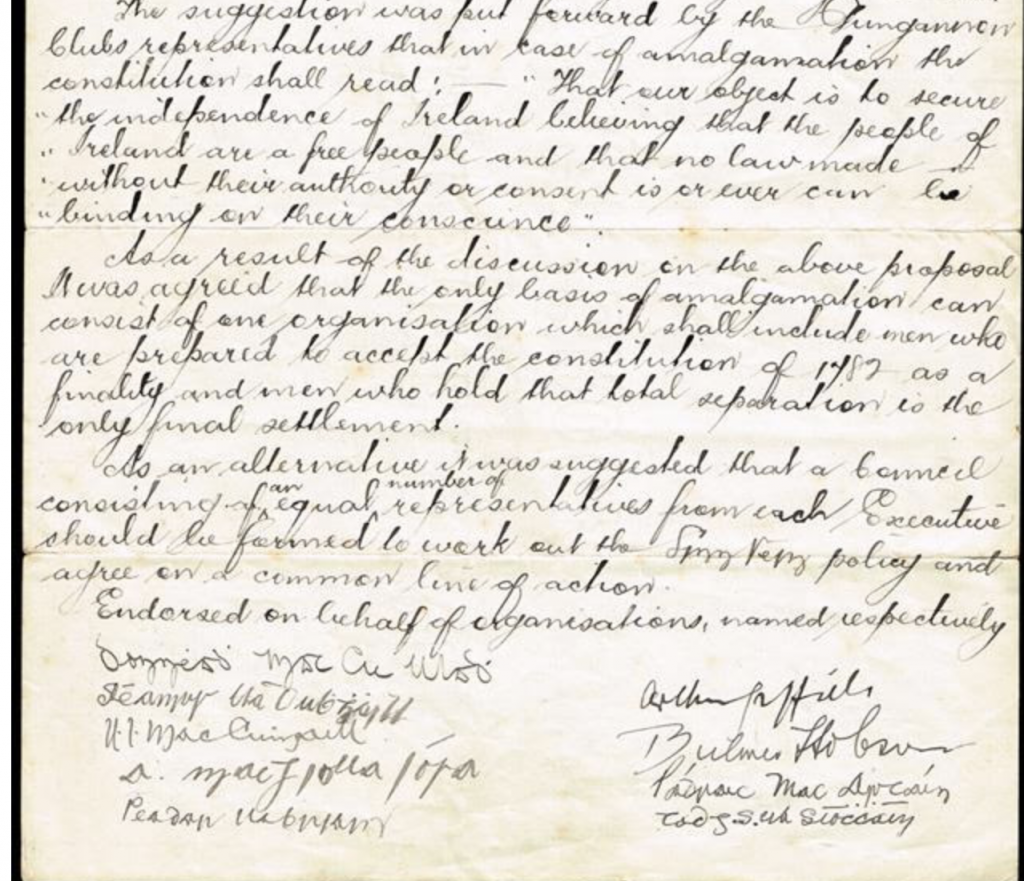 The suggestion was put forward by the Dungannon
Clubs representatives that in case of amalgamation the
constitution shall read: — "That our object is to secure
"the independence of Ireland believing that the people of
"Ireland are a free people and that no law made
"without their authority or consent is or ever can be
"binding on their conscience".
As a result of the discussion on the above proposal
it was agreed that the only basis of amalgamation can
consist of one organisation which shall include men who
are prepared to accept the constitution of 1782 as a
finality and men who hold that total separation is the
only final settlement.
As an alternative it was suggested that a Council
consisting of an equal number of representatives from each Executive
should be formed to work out the Sinn Féin policy and
agree on a common line of action.
Endorsed on behalf of organisations, named respectively
Mac Cu Uladh
Séamus Ua Dubhghaill
Arthur Griffith
Bulmer Hobson
a. mac giolla
Pádraic Mac
Peadar
Tadg. S. Ua